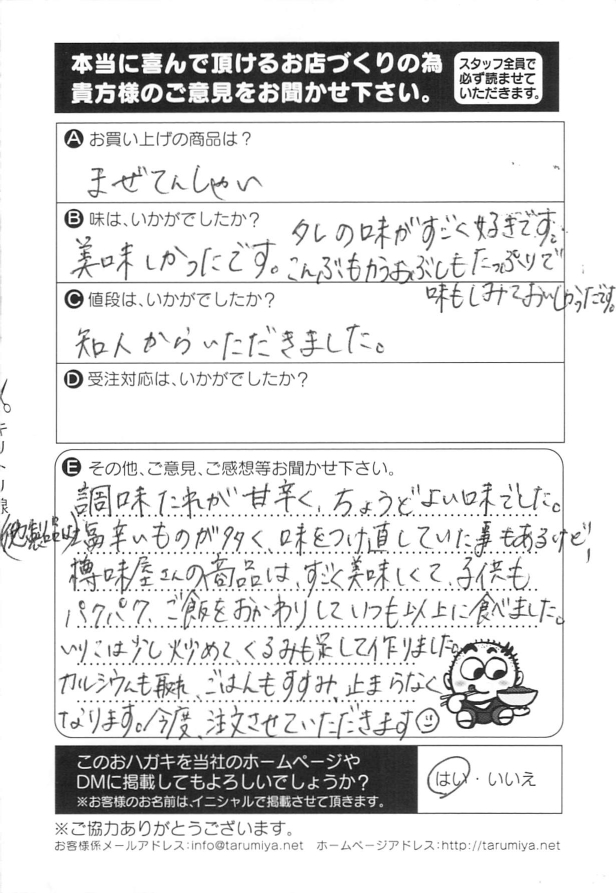 本当に喜んで頂けるお店づくりの為
貴方様のご意見をお聞かせ下さい。
スタッフ全員で
必ず読ませて
いただきます。
A お買い上げの商品は?
まぜてんしゃい
B 味は、いかがでしたか?
美味しかったです。
タレの味がすごく好きです。
こんぶもかつおぶしもたっぷりで
味もしみておいしかったです。
C 値段は、いかがでしたか?
知人からいただきました。
D 受注対応は、いかがでしたか?
E その他、ご意見、ご感想等お聞かせ下さい。
調味たれが甘辛く、ちょうどよい味でした。
(他製品は)塩辛いものが多く、味をつけ直していた事もあるけど、
樽味屋さんの商品は、すごく美味しくて、子供も
パクパク、ご飯をおかわりしていつも以上に食べました。
いりこは少し炒めて、くるみも足して作りました。
カルシウムも取れ、ごはんもすすみ、止まらなく
なります。今度、注文させていただきます
キリトリ線
このおハガキを当社のホームページや
DMに掲載してもよろしいでしょうか?
※お客様のお名前は、イニシャルで掲載させて頂きます。
はい・いいえ
※ご協力ありがとうございます。
お客様係メールアドレス:info@tarumiya.net ホームページアドレス:http://tarumiya.net